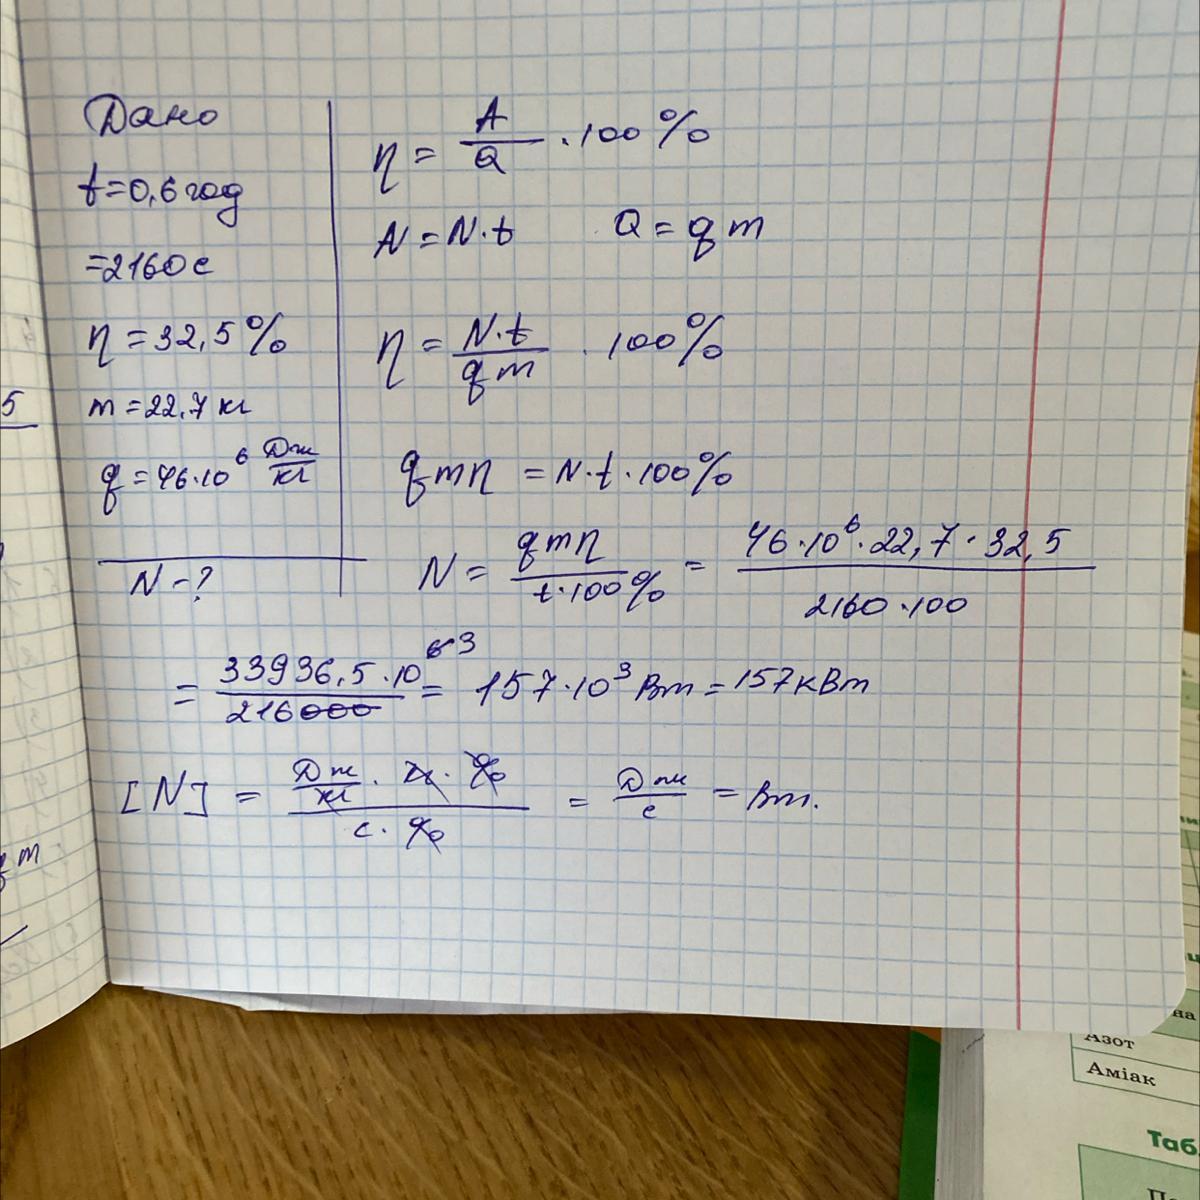 Дано
t=0,6 год
=2160 с
η = 32,5%
m = 22,7 кг
q = 46·10⁶ Дж/кг
N - ?
η = A/Q · 100%
A = N·t    Q = qm
η = N·t/qm · 100%
qmη = N·t·100%
N = qmη/t·100% = 46·10⁶·22,7·32,5/2160·100
= 33936,5·10⁶ ³/216000 = 157·10³ Вт = 157 кВт
[N] = Дж/кг · кг · %/с · % = Дж/с = Вт.
5
qm
Азот
Аміак
Таб